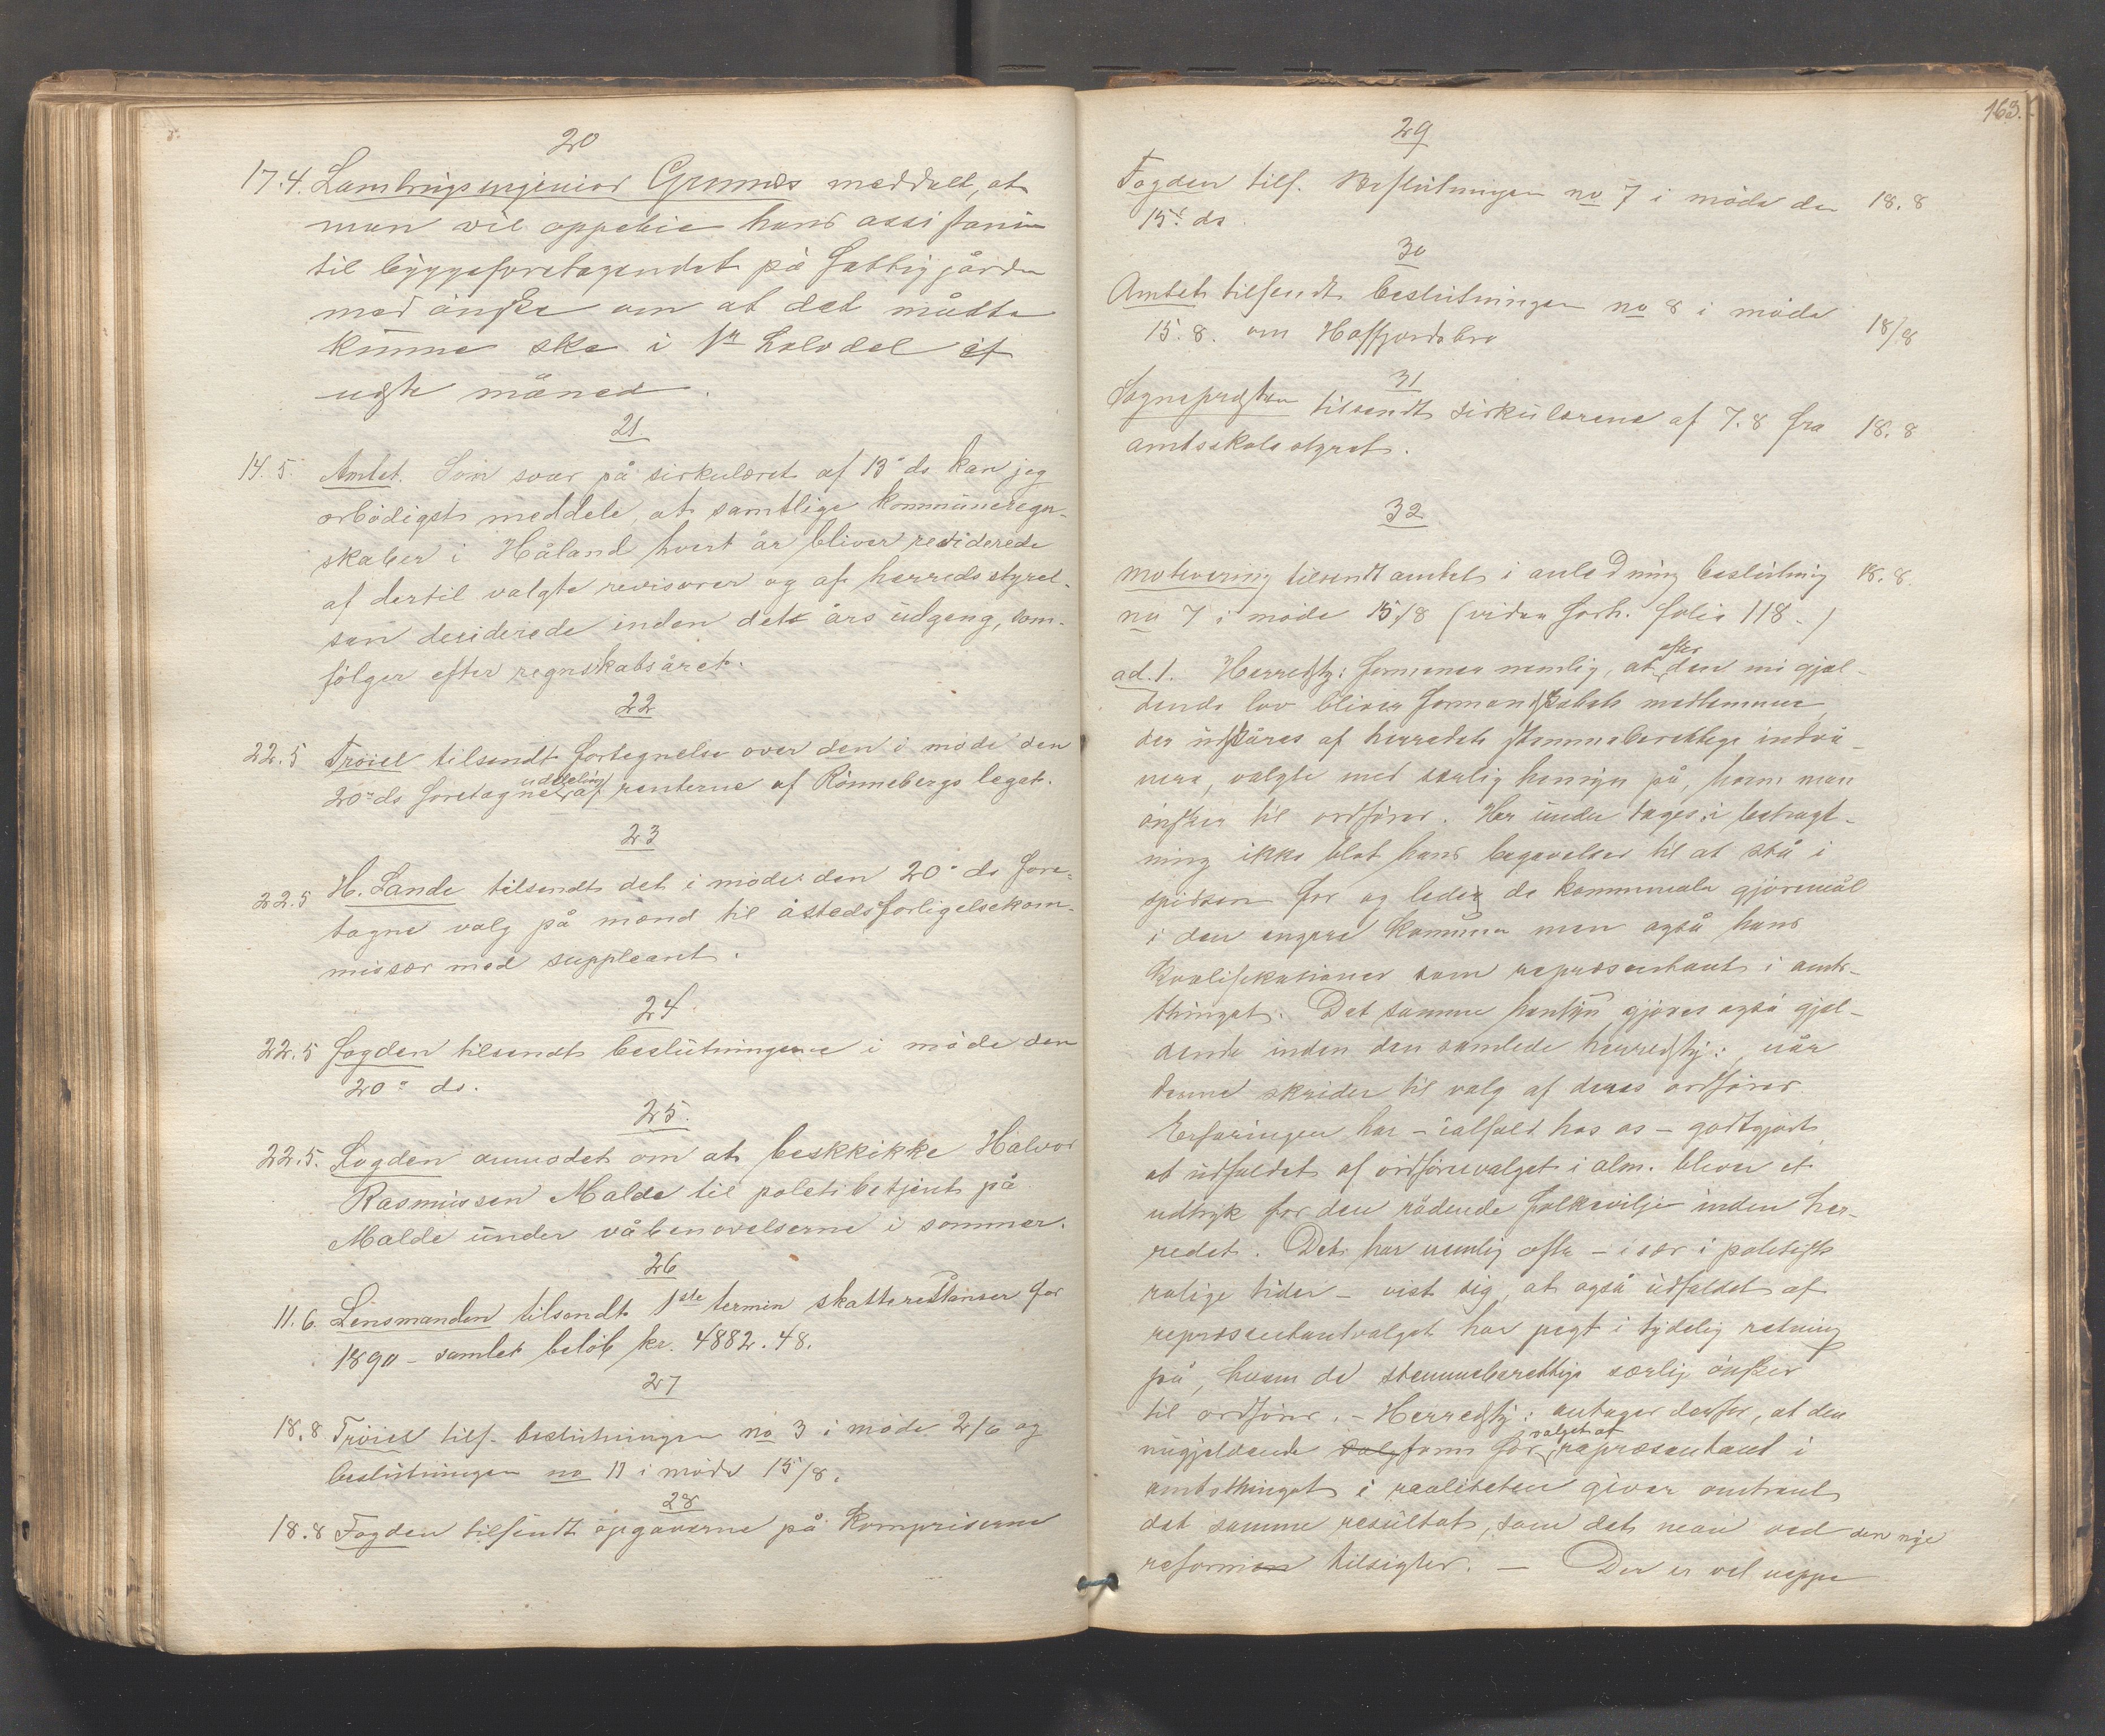 20
17.4. Landbrugsingeniør meddelt, at
man vil oppebie hans assistanse
til byggeforetagendet på fattiggården
med ønske om at det måtte
kunne ske i 1ste halvdel af
næste måned.
21
14.5. Amtet. Som svar på sirkulæret af 13de ds kan jeg
ærbødigst meddele, at samtlige kommuneregn-
skaber i Håland hvert år bliver reviderede
af dertil valgte revisorer og af herredsstyrel-
sen desiderede inden dets års udgang, som
følger efter regnskabsåret.
22
22.5 Trøiel tilsendt fortegnelse over den i møde den
20de ds foretagne uddeling af renterne af Rønnebergs legat.
23
22.5 H. Sande tilsendt det i møde den 20de ds fore-
tagne valg på mænd til åstedsforligelsekom-
missær med suppleant.
24
22.5 Fogden tilsendt beslutningerne i møde den
20de ds.
25.
22.5. Fogden anmodet om at beskkikke Halvor
Rasmussen Malde til politibetjent på
Malde under våbenøvelserne i sommer.
26
11.6. Lensmanden tilsendt 1ste termin skatterestanser for
1890 – samlet beløb kr. 4882.48.
27
18.8 Trøiel tils. beslutningen no 3 i møde 2/6 og
beslutningen no 11 i møde 15/8.
28
18.8 Fogden tilsendt opgaverne på kornpriserne
163.
29
Fogden tils. Beslutningen no 7 i møde den 18.8
15de ds.
30
Amtet tilsendt beslutningen no 8 i møde
15.8. om Hafsfjordsbro 18/8
31
Sognepresten tilsendt sirkulærene af 7.8 fra 18.8
amtsskolestyret.
32
Motivering tilsendt amtet i anledning beslutning 18.8.
no 7 i møde 15/8 (viden forh. folio 118.)
ad. 1. Herredsty: formener nemlig, at efter den nu gjæl-
dende lov bliver formandskabets medlemmer
der udkåres af herredets stemmeberettige indvå-
nere, valgte med særlig hensyn på, hvem man
ønsker til ordfører. Her under tages i betragt-
ning ikke blot hans begavelser til at stå i
spidsen for og lede de kommunale gjøremål
i den engere kommune men også hans
kvalifikationer som repræsentant i amts-
thinget. Det samme hensyn gjøres også gjæl-
dende inden den samlede herredsty:, når
denne skrider til valg af deres ordfører.
Erfaringen har – ialfald hos os – godtgjort,
at udfaldet af ordførervalget i alm. bliver et
udtryk for den rådende folkevilje inden her-
redet. Det har nemlig ofte – især i politisk
rolige tider – vist sig, at også udfaldet af
repræsentantvalget har pegt i tydelig retning
på, hvem de stemmeberettige særlig ønsker
til ordfører. – Herredsty: antager derfor, at den
nugjeldende valgform for valget af repræsentant i
amtsthinget i realiteten giver omtrent
det samme resultat, som det man ved den nye
reformen tilsigter. – Der er vel neppe